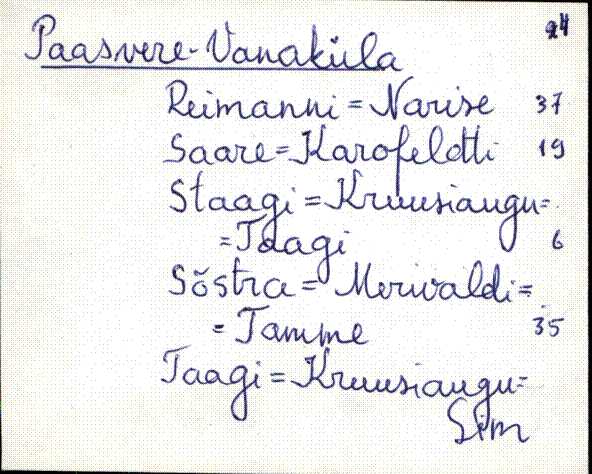 24
Paasvere-Vanaküla
Reimanni = Narise 37
Saare = Karofeldti 19
Staagi = Kruusiaugu =
= Taagi 6
Sõstra = Merivaldi =
= Tamme 35
Taagi = Kruusiaugu =
Sim